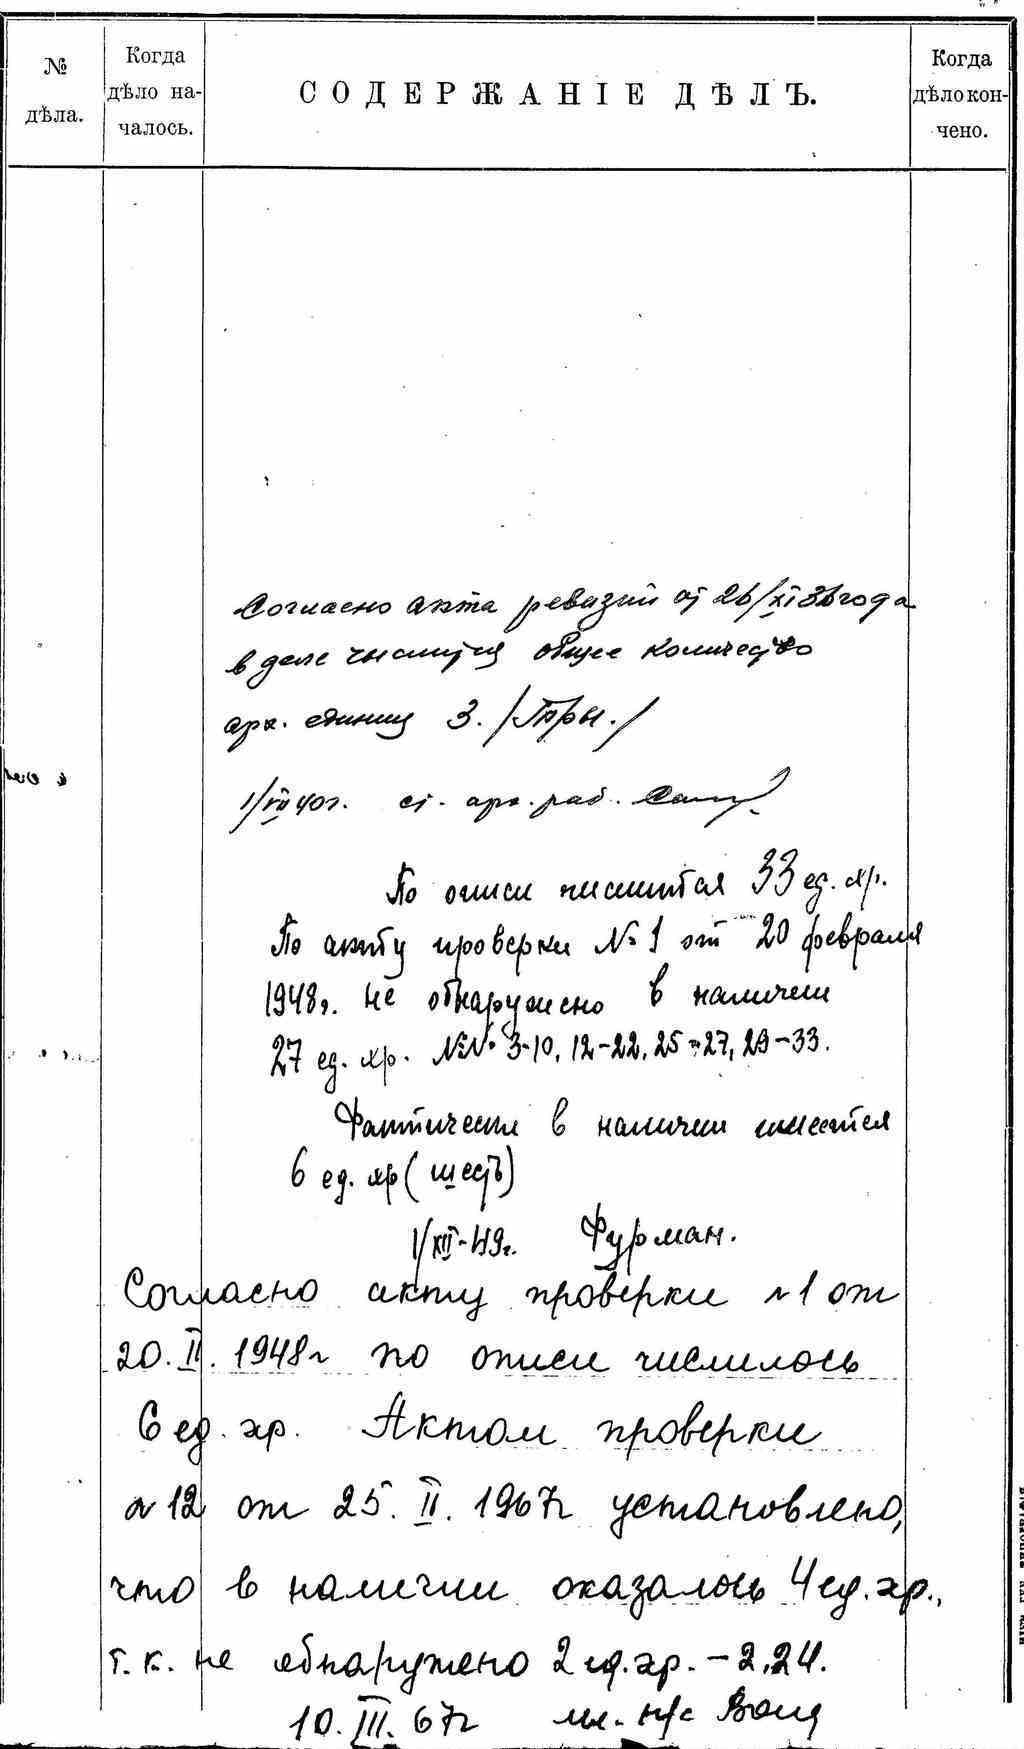 № дѣла.
Когда дѣло на-
чалось.
СОДЕРЖАНІЕ ДѢЛЪ.
Когда дѣло кон-
чено.
Согласно акта ревизии от 26/XI 36 года
в деле числится общее количество
арх. единиц 3. /Три./
1/VII 40г. ст. арх. раб.
По описи числится 33 ед. хр.
По акту проверки №1 от 20 февраля
1948г. не обнаружено в наличии
27 ед. хр. №№ 3-10, 12-22, 25-27, 29-33.
Фактически в наличии имеется
6 ед. хр (шесть)
1/XII-49г. Фурман.
Согласно акту проверки №1 от
20. II. 1948г по описи числилось
6 ед. хр. Актом проверки
№12 от 25. II. 1967г установлено,
что в наличии оказалось 4 ед. хр.,
т.к. не обнаружено 2 ед. хр. - 2, 24.
10. III. 67г мл. н/с